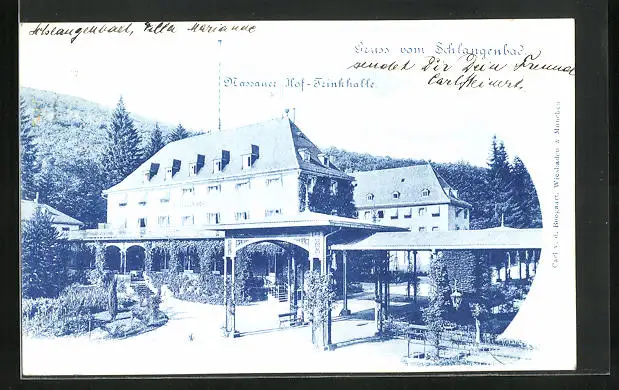 Schlangenbad, Villa Marianne
Gruss vom Schlangenbad
sendet Dir Dein Freund
Carl Steinert.
Nassauer Hof-Trinkhalle.
Carl v. d. Boogaart, Wiesbaden & München